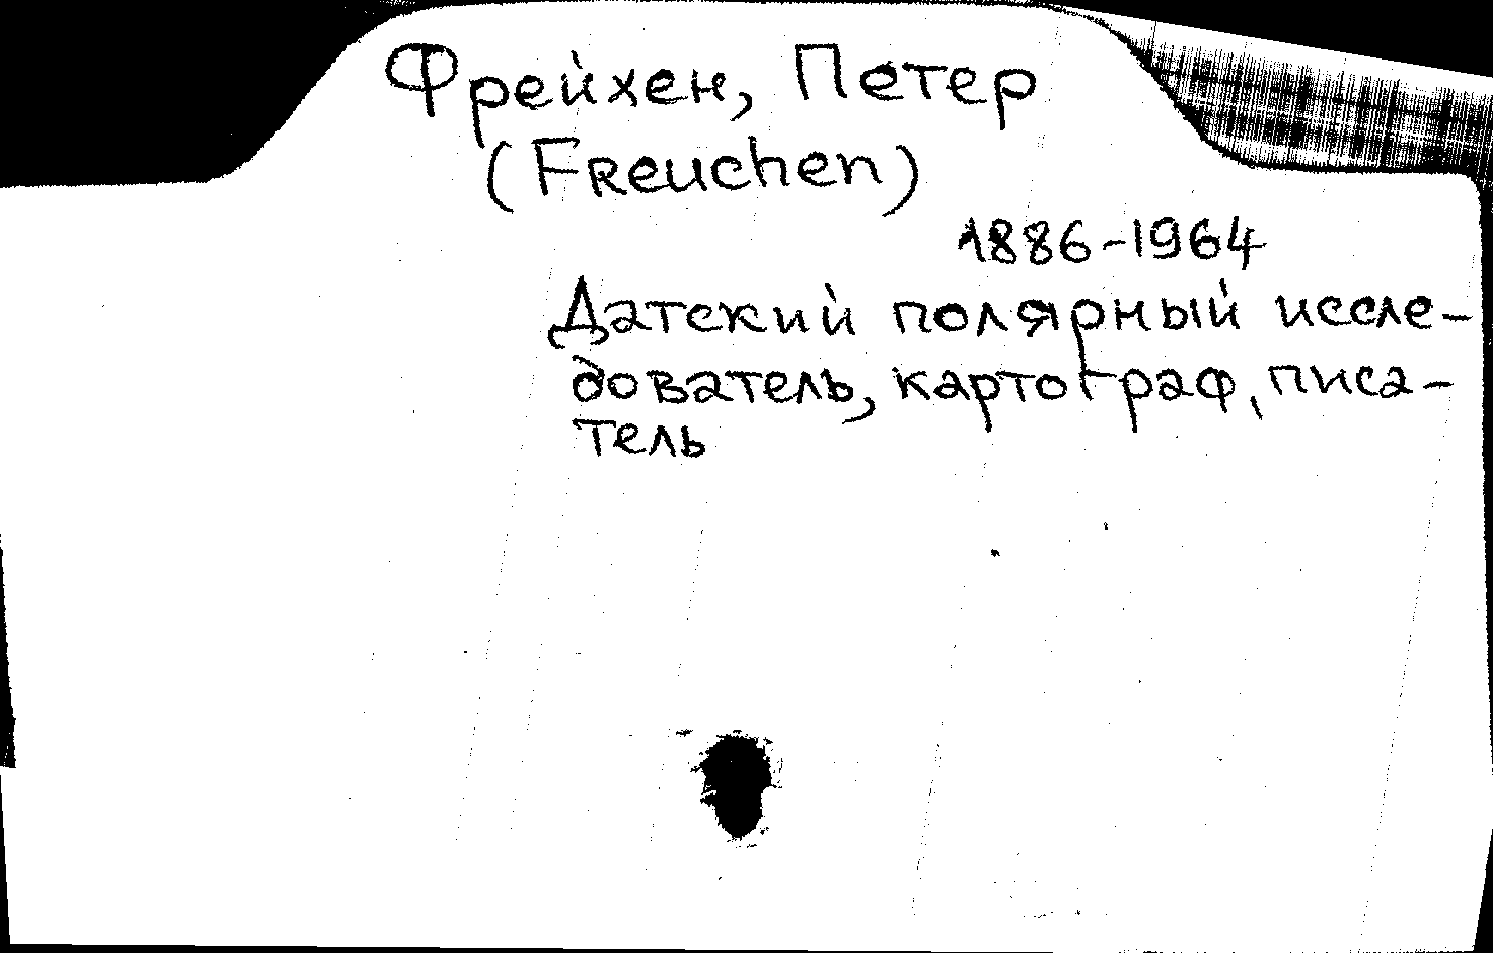 Фрейхен, Петер
(Freuchen)
1886-1964
Датский полярный иссле-
дователь, картограф, писа-
тель